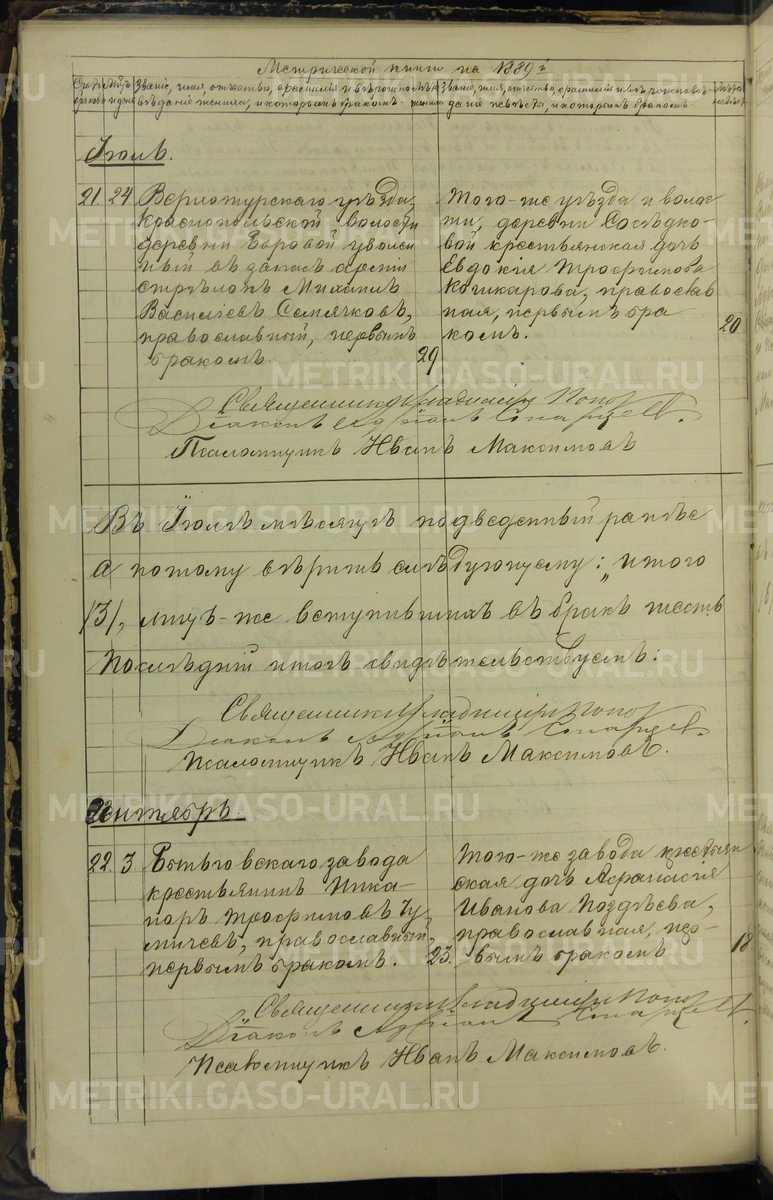 Метрической книги на 1889й
Званіе, имя, отчество, фамилія и вѣроисповѣданіе жениха, и которымъ бракомъ
Званіе, имя, отчество, фамилія и вѣроисповѣданіе невѣсты, и которымъ бракомъ
Іюль.
21. 24. Верхотурскаго уѣзда,
Краснопольской волости
деревни Боровой уволен
ный въ запасъ арміи
стрѣлокъ Михаилъ
Василіевъ Семячковъ,
православный, первымъ
бракомъ. 29
Того-же уѣзда и волос
ти, деревни Сосѣдко-
вой крестьянская дочь
Евдокія Трофимова
Кошкарова, православ
ная, первымъ бра
комъ. 20
Священникъ Владиміръ Попов
Діаконъ Адріанъ Старцев.
Псаломщикъ Иванъ Максимовъ
Въ Іюлѣ мѣсяцѣ подведенный ранѣе
а потому вѣрить слѣдующему: „итого
/3/, лицъ-же вступившихъ въ бракъ шесть
Послѣдній итогъ свидѣтельствуемъ:
Священникъ Владиміръ Попов
Діаконъ Адріанъ Старцев.
Псаломщикъ Иванъ Максимовъ.
Сентябрь.
22. 3. Бытьговскаго завода
крестьянинъ Ника-
норъ Трофимовъ Гу
мичевъ, православный,
первымъ бракомъ. 23.
Того-же завода крестьян
ская дочь Афанасія
Иванова Поздѣева,
православная, пер-
вымъ бракомъ 18
Священникъ Владиміръ Попов
Діаконъ Адріанъ Старцев.
Псаломщикъ Иванъ Максимовъ.
METRIKI.GASO-URAL.RU